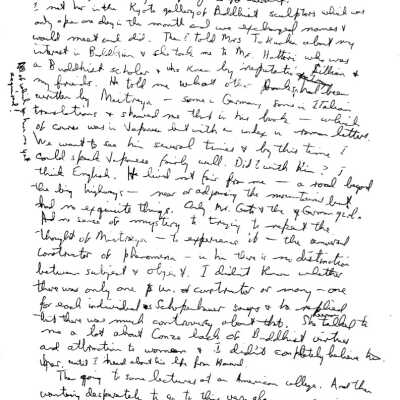 I met her in the Kyoto gallery of Buddhist sculptors which was
only open one day in the month and we exchanged names &
would meet and did. Then I told Mrs T about my
interest in Buddhism & she took me to Mr. Hattori who was
a Buddhist scholar & who knew by reputation &
my friends. He told me what other books had been
written by Maitreya — some in German, some in Italian
translations & showed me that in his book — which
of course was in Japanese but with an index in roman letters.
We went to see him several times & by this time I
could speak Japanese fairly well. Did I with him? I
think English. He lived not far from me — a road beyond
the big highway — near or adjoining the mountains but
had no exquisite things. Only Mr. & the German girl.
And no sense of mystery to trying to repeat the
thought of Maitreya — to experience it — the unreal
constructor of phenomena — in whom there is no distinction
between subject & object. I didn't know whether
there was only one constructor or many — one
for each individual. Schopenhauer says & he replied
but there was much controversy about that. She talked to
me a lot about Conze lack of Buddhist virtues
and attraction to women & I didn't completely believe
until I heard about his life from
The going to some lectures at an American college. And then
wanting desperately to go to this